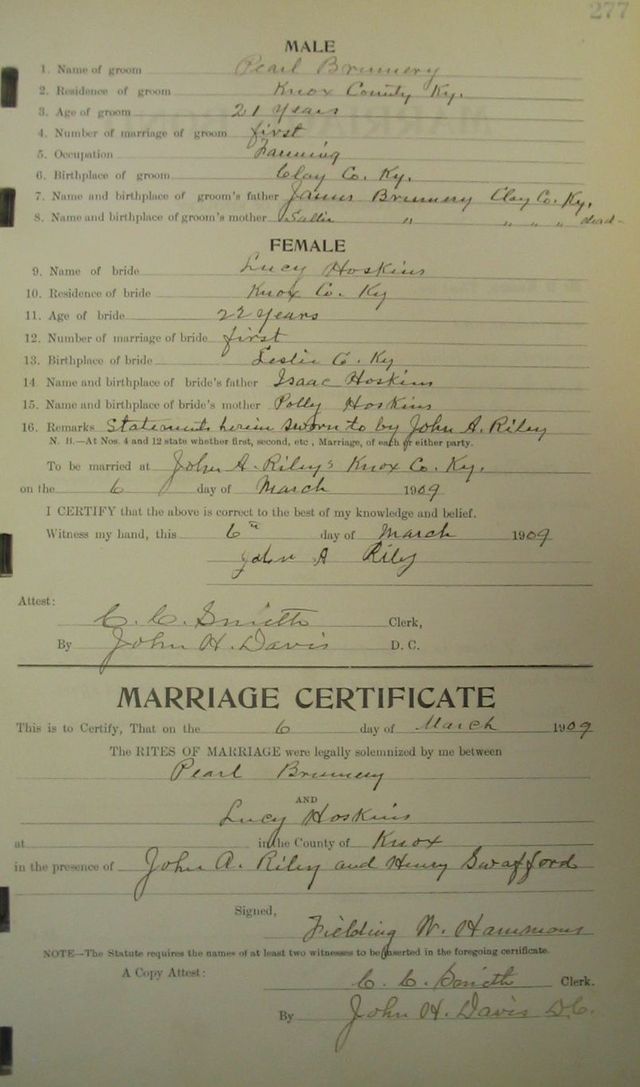 277
MALE
1. Name of groom Pearl Brummery
2. Residence of groom Knox County Ky.
3. Age of groom 21 years
4. Number of marriage of groom first
5. Occupation Farming
6. Birthplace of groom Clay Co. Ky.
7. Name and birthplace of groom's father James Brummery Clay Co. Ky.
8. Name and birthplace of groom's mother Sallie " " " " dead
FEMALE
9. Name of bride Lucy Hoskins
10. Residence of bride Knox Co. Ky
11. Age of bride 22 years
12. Number of marriage of bride first
13. Birthplace of bride Leslie C. Ky
14. Name and birthplace of bride's father Isaac Hoskins
15. Name and birthplace of bride's mother Polly Hoskins
16. Remarks Statements herein sworn to by John A. Riley
N. B.—At Nos. 4 and 12 state whether first, second, etc., Marriage, of each or either party.
To be married at John A. Riley's Knox Co. Ky.
on the 6 day of March 1909
I CERTIFY that the above is correct to the best of my knowledge and belief.
Witness my hand, this 6th day of March 1909
John A Riley
Attest:
C. C. Smith Clerk,
By John H. Davis D. C.
MARRIAGE CERTIFICATE
This is to Certify, That on the 6 day of March 1909
The RITES OF MARRIAGE were legally solemnized by me between
Pearl Brummery
AND
Lucy Hoskins
at in the County of Knox
in the presence of John A. Riley and Henry Swafford
Signed,
Fielding W. Hammons
NOTE—The Statute requires the names of at least two witnesses to be inserted in the foregoing certificate.
A Copy Attest: C. C. Smith Clerk.
By John H. Davis D.C.